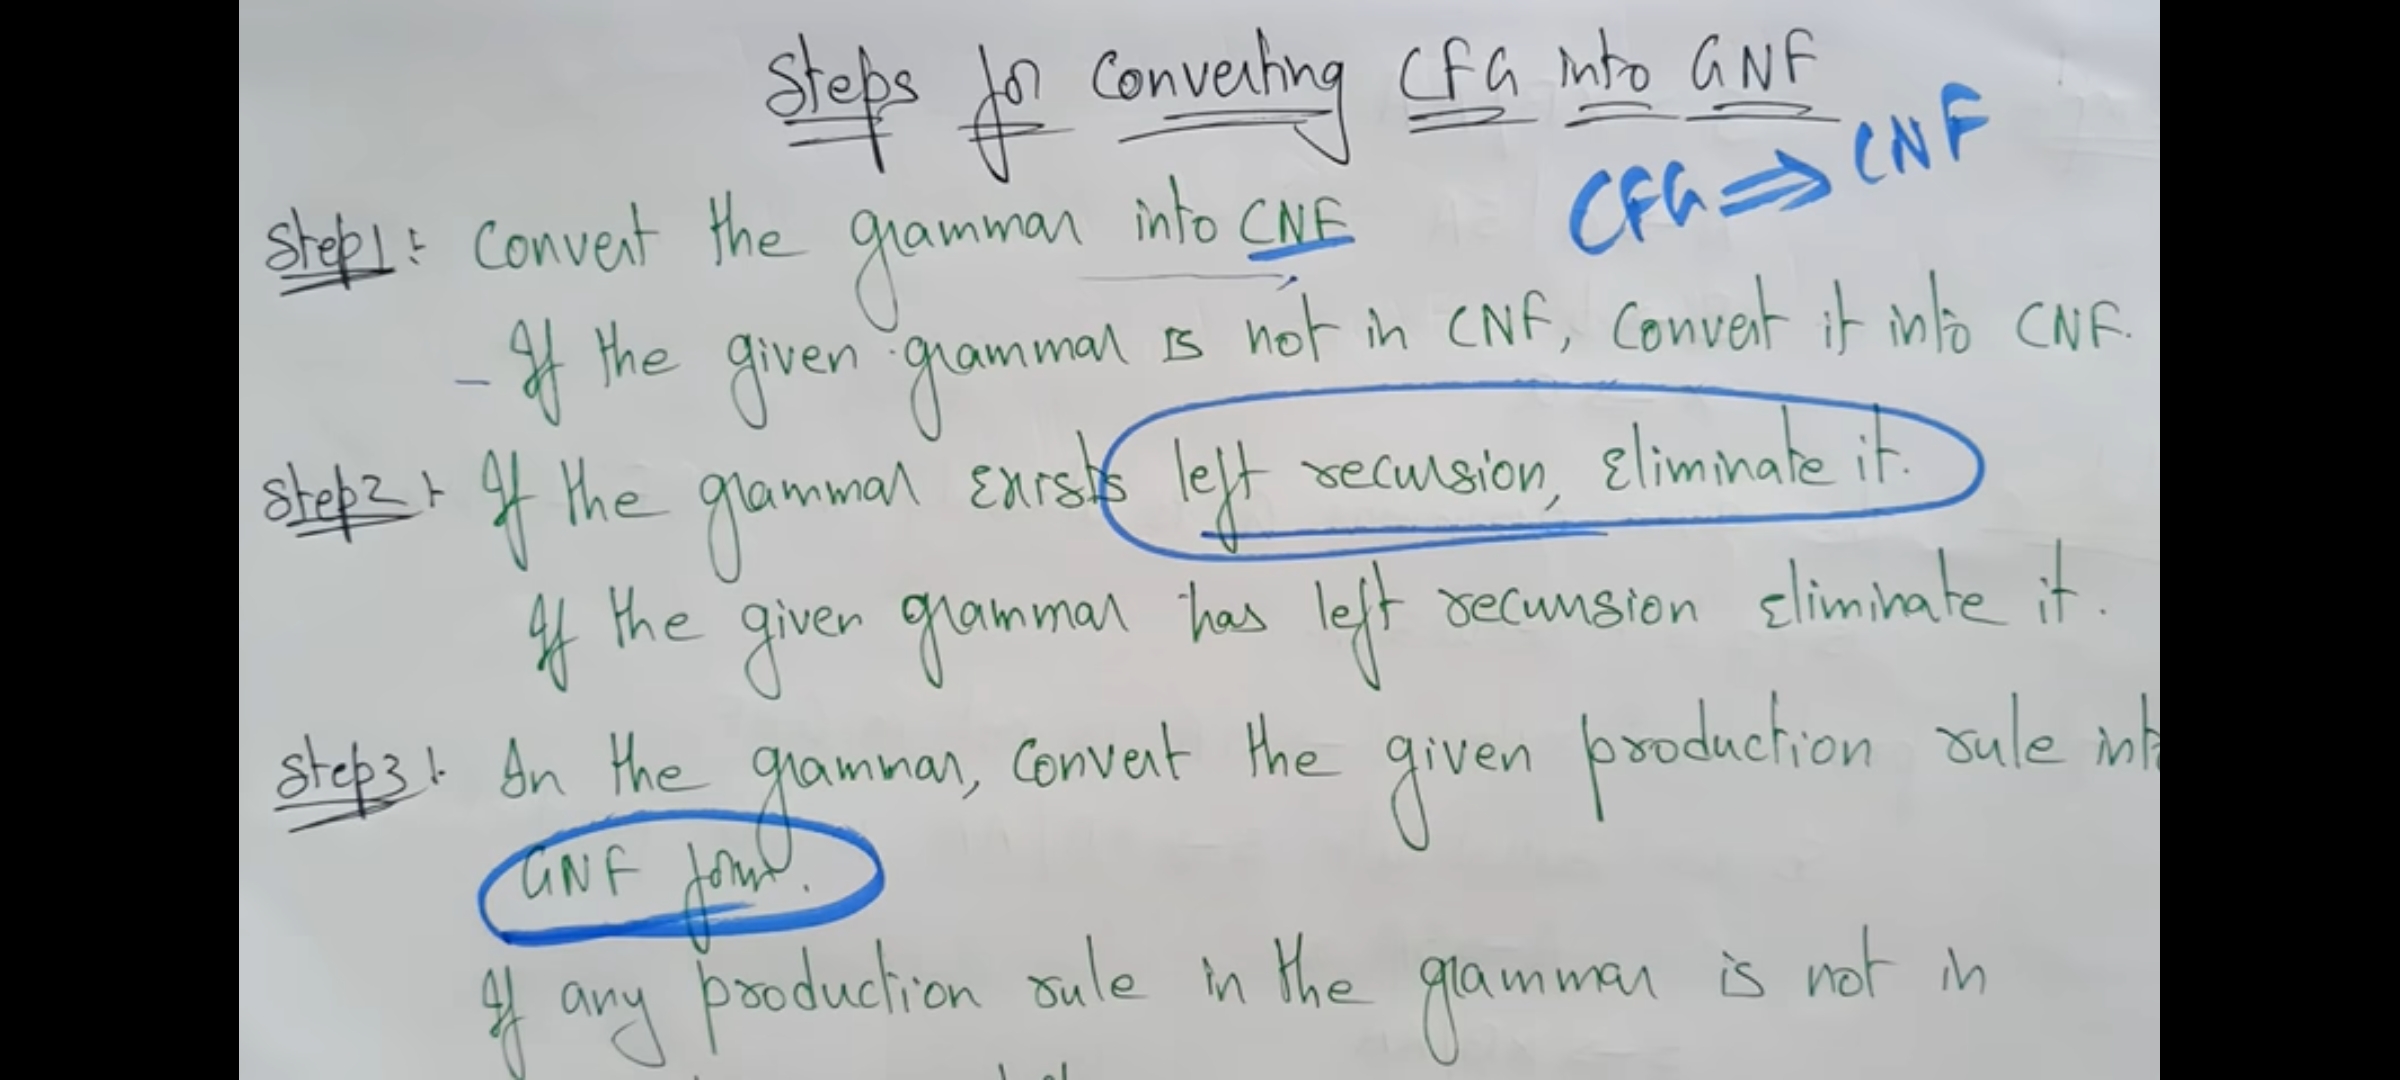 Steps for Converting CFG into GNF
CFG ⇒ CNF
Step1: Convert the grammar into CNF
- If the given grammar is not in CNF, Convert it into CNF.
Step2: If the grammar exists left recursion, Eliminate it.
If the given grammar has left recursion eliminate it.
Step3: In the grammar, Convert the given production rule int
GNF form.
If any production rule in the grammar is not in